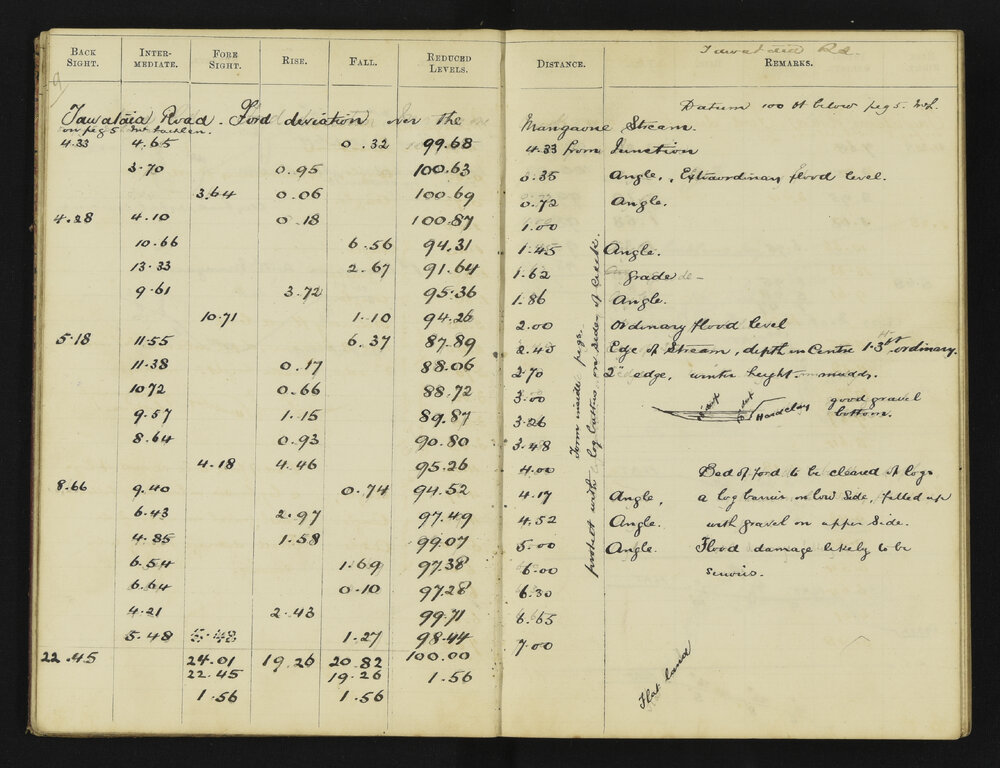 BACK SIGHT. INTER-MEDIATE. FORE SIGHT. RISE. FALL. REDUCED LEVELS. DISTANCE. REMARKS.
Tawataia Rd.
Datum 100 ft below peg 5.
Tawataia Road. Ford deviation over the Mangaone Stream.
on peg 5
4.33 4.65 0.32 99.68 4.33 from Junction
3.70 0.95 100.63 0.35 Angle, Extraordinary flood level.
3.64 0.06 100.69 0.72 Angle.
4.28 4.10 0.18 100.87 1.00
10.66 6.56 94.31 1.45 Angle.
13.33 2.67 91.64 1.62 grade
9.61 3.72 95.36 1.86 Angle.
10.71 1.10 94.26 2.00 Ordinary flood level
5.18 11.55 6.37 87.89 2.40 Edge of Stream, depth in Centre 1.3 ft ordinary.
11.38 0.17 88.06 2.70 2" edge, winter height
10.72 0.66 88.72 3.00
Hard clay good gravel bottom.
9.57 1.15 89.87 3.26
8.64 0.93 90.80 3.48
4.18 4.46 95.26 4.00 Bed of ford to be cleared of logs
8.66 9.40 0.74 94.52 4.17 Angle, a log barrier on low side, filled up
6.43 2.97 97.49 4.52 Angle. with gravel on upper side.
4.85 1.58 99.07 5.00 Angle. Flood damage likely to be
6.54 1.69 97.38 6.00 serious.
6.64 0.10 97.28 6.30
4.21 2.43 99.71 6.65
5.48 5.48 1.27 98.44 7.00
22.45 24.01 19.26 20.82 100.00
22.45 19.26 1.56
1.56 1.56
Form inside pegs.
protect with log battens on sides of creek.
Flat land